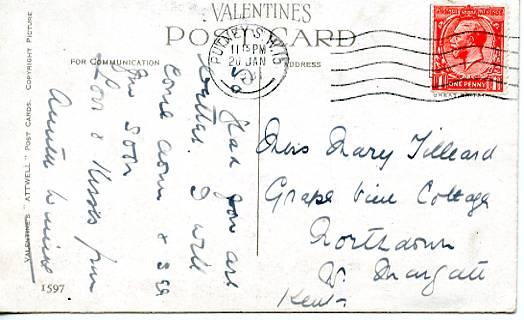 VALENTINES
POST CARD
FOR COMMUNICATION
ADDRESS
PUTNEY S.W.15
11 15 PM
20 JAN
ONE PENNY
So glad you are
better. I will
come down & see
you soon
Love & Kisses from
Auntie Winnie
Miss Mary Tilleard
Grape Vine Cottage
Northdown
Nr. Margate
Kent
VALENTINE'S "ATTWELL" POST CARDS. COPYRIGHT PICTURE
1597